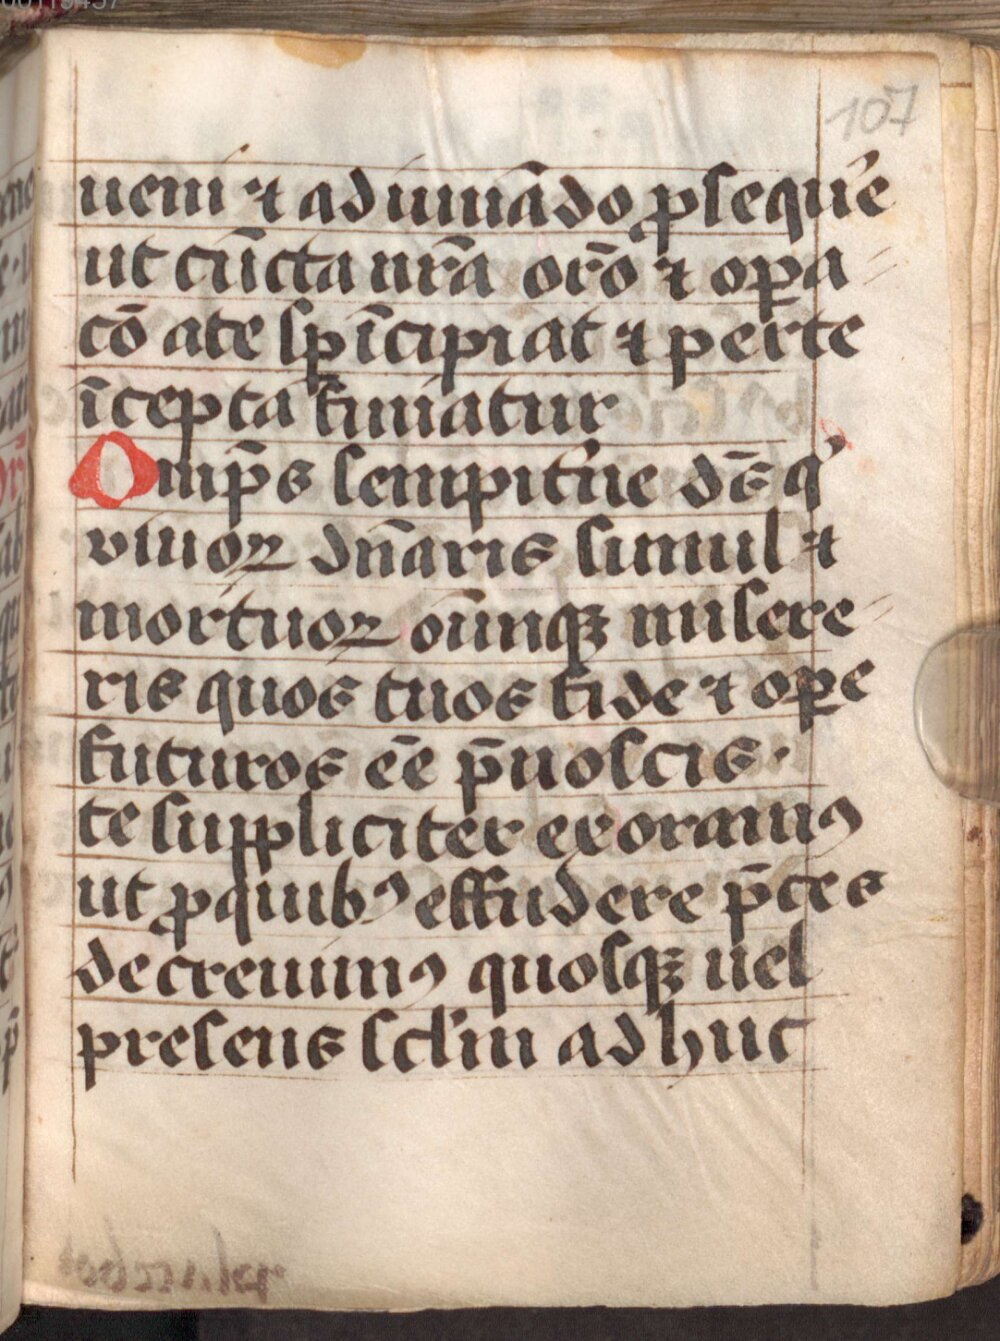 107
ueni ⁊ adiuuādo ꝓseque
ut cūcta nr̄a or̄o ⁊ oꝑa
cō a te sꝑ īcipiat ⁊ per te
īcepta finiatur
Omp̄s sempit̄ne ds̄ q
viuoꝝ dn̄aris simul ⁊
mortuoꝝ oīmqꝫ misere
ris quos tuos fide ⁊ oꝑe
futuros eē p̄noscis·
te suppliciter exoramꝰ
ut ꝓ quibꝰ effudere p̄ces
decreuimꝰ quosqꝫ uel
presens sclm adhuc